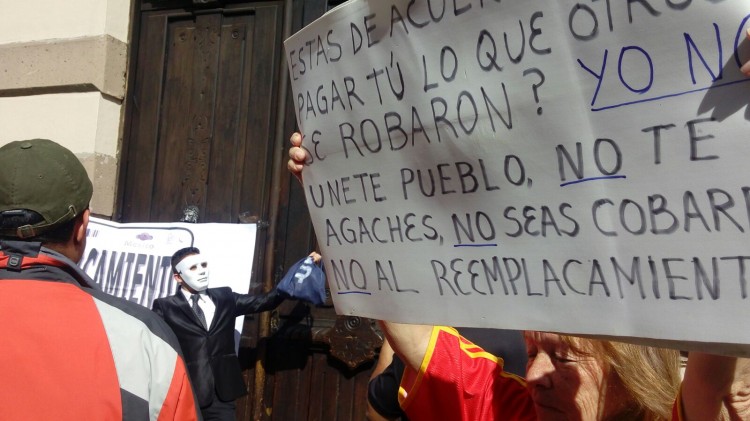 ESTAS DE ACUER
PAGAR TÚ LO QUE OTROS
SE ROBARON? YO NO
UNETE PUEBLO, NO TE
AGACHES, NO SEAS COBARD
NO AL REEMPLACAMIENT
CAMIENT